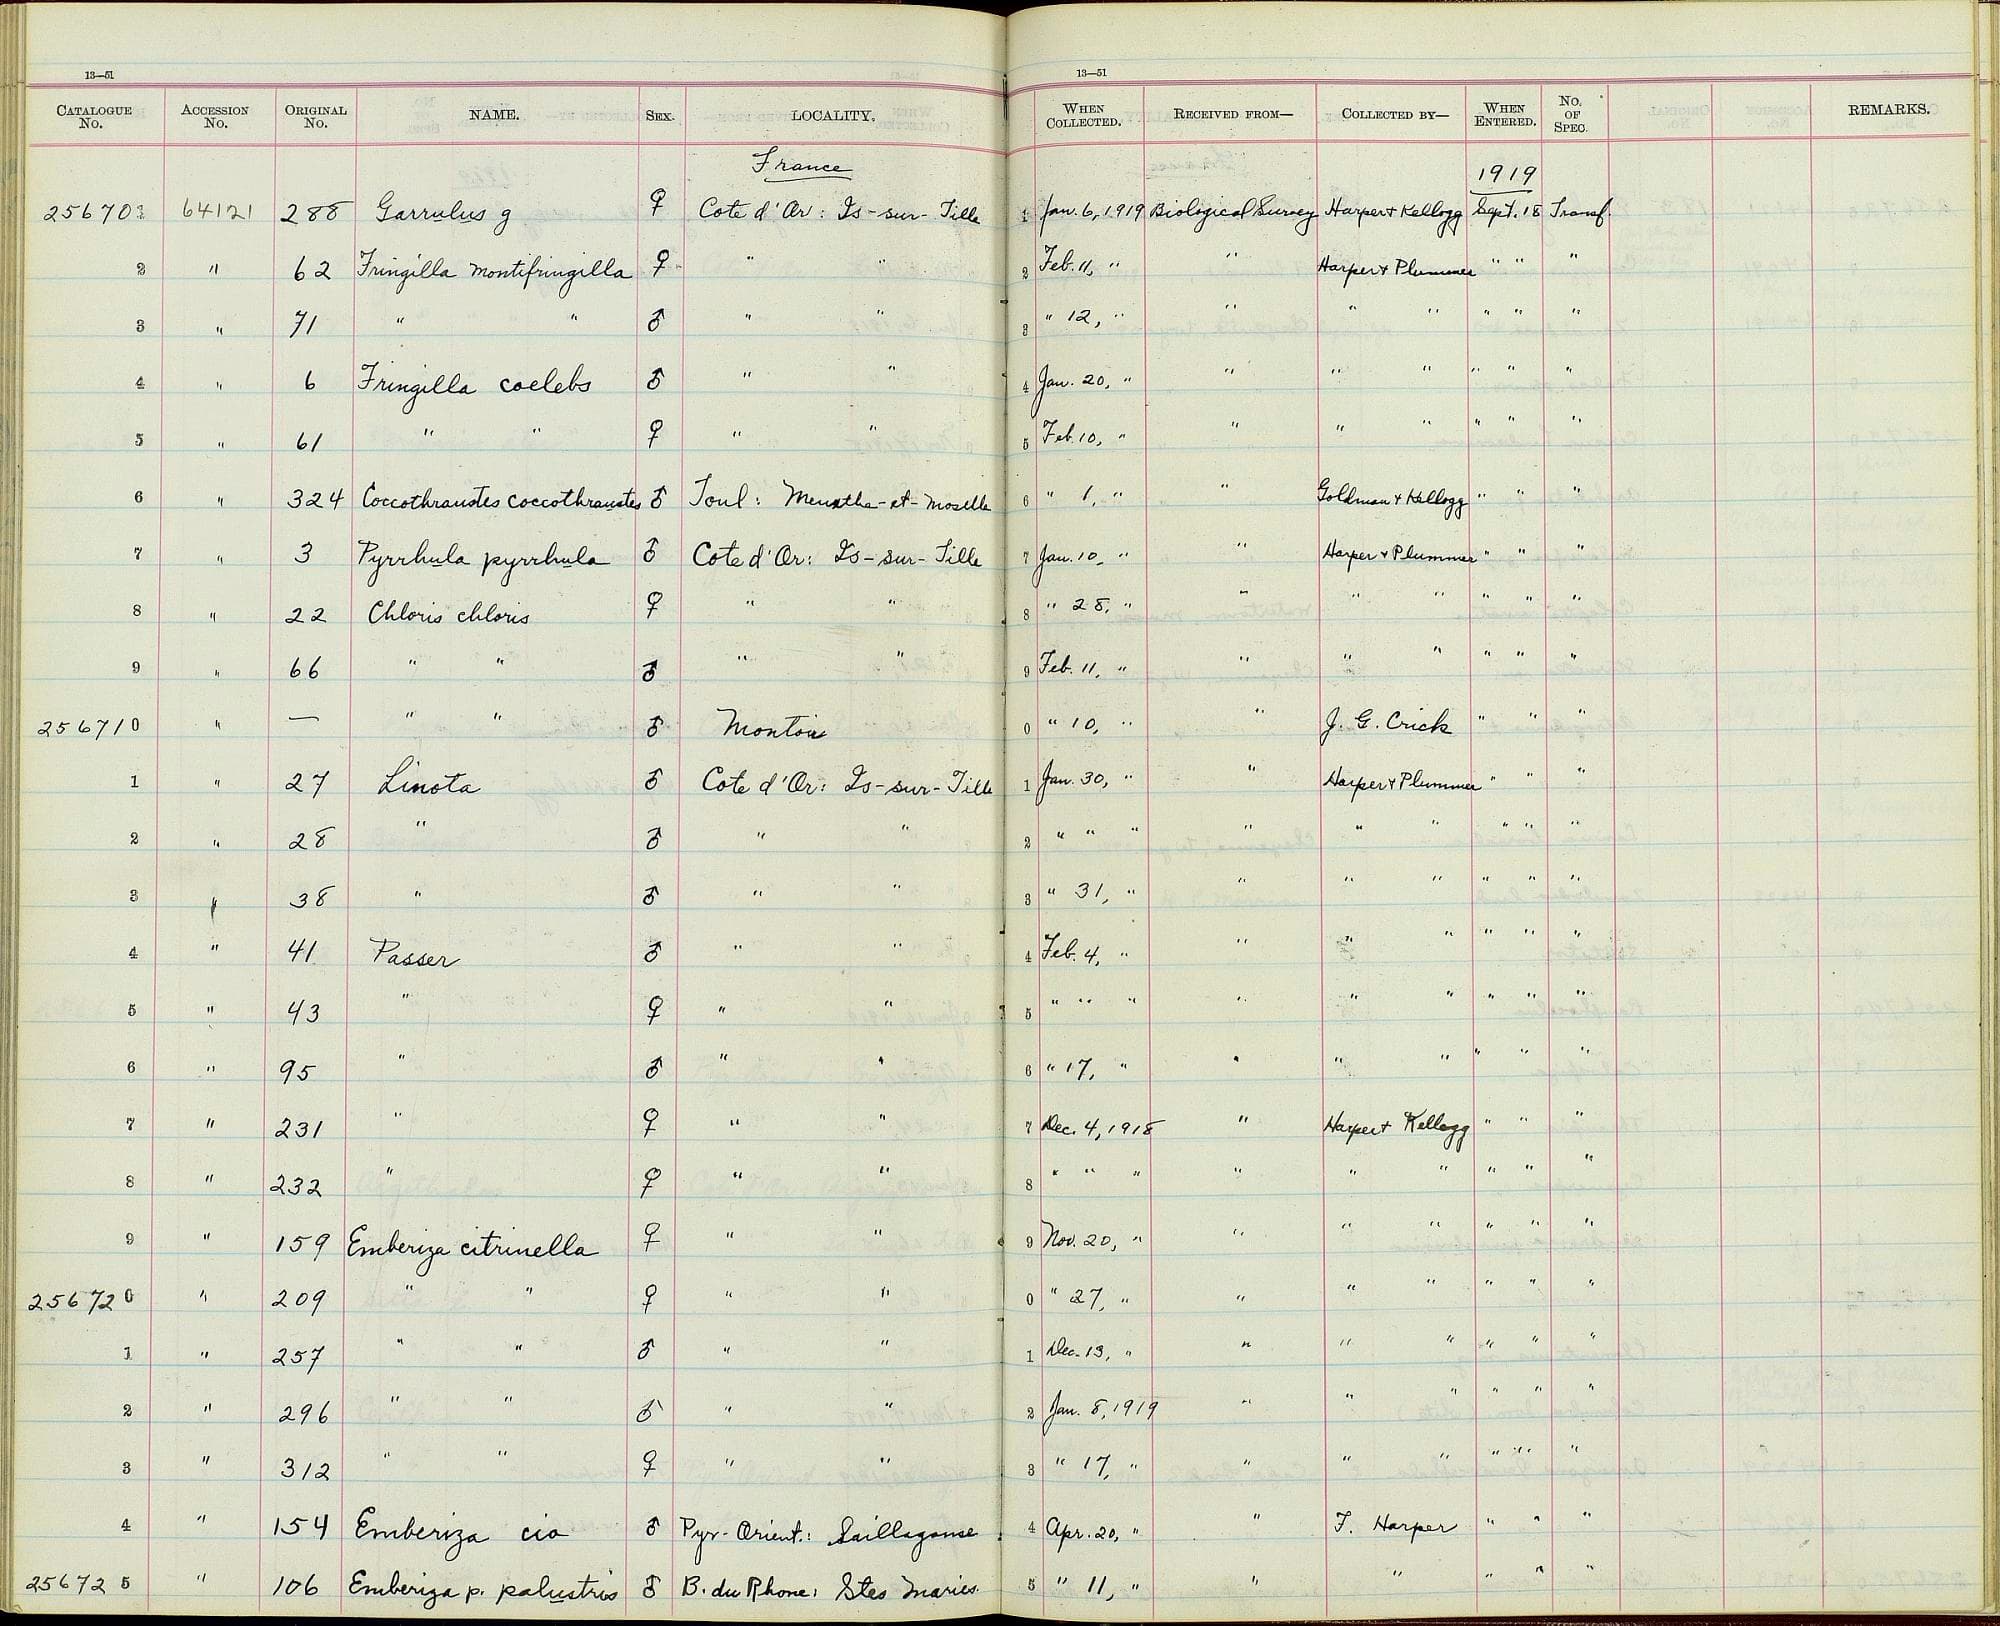 13—51 13—51
CATALOGUE No. ACCESSION No. ORIGINAL No. NAME. SEX. LOCALITY. WHEN COLLECTED. RECEIVED FROM— COLLECTED BY— WHEN ENTERED. NO. OF SPEC. REMARKS.
France 1919
256701 64121 288 Garrulus g ♀ Cote d'Or: Is-sur-Tille 1 Jan. 6, 1919 Biological Survey Harper + Kellogg Sept. 18 Transf.
2 " 62 Fringilla montifringilla ♀ " " 2 Feb. 11, " " Harper + Plummer " " "
3 " 71 " " ♂ " " 3 " 12, " " " " " " "
4 " 6 Fringilla coelebs ♂ " " 4 Jan. 20, " " " " " " "
5 " 61 " " ♀ " " 5 Feb. 10, " " " " " " "
6 " 324 Coccothraustes coccothraustes ♂ Toul: Meurthe-et-Moselle 6 " 1, " " Goldman + Kellogg " " "
7 " 3 Pyrrhula pyrrhula ♂ Cote d'Or: Is-sur-Tille 7 Jan. 10, " " Harper + Plummer " " "
8 " 22 Chloris chloris ♀ " " 8 " 28, " " " " " " "
9 " 66 " " ♂ " " 9 Feb. 11, " " " " " " "
256710 " — " " ♂ Montoir 0 " 10, " " J. G. Crick " " "
1 " 27 Linota ♂ Cote d'Or: Is-sur-Tille 1 Jan. 30, " " Harper + Plummer " " "
2 " 28 " ♂ " " 2 " " " " " " " " "
3 " 38 " ♂ " " 3 " 31, " " " " " " "
4 " 41 Passer ♂ " " 4 Feb. 4, " " " " " " "
5 " 43 " ♀ " " 5 " " " " " " " " "
6 " 95 " ♂ " " 6 " 17, " " " " " " "
7 " 231 " ♀ " " 7 Dec. 4, 1918 " Harper + Kellogg " " "
8 " 232 " ♀ " " 8 " " " " " " " " "
9 " 159 Emberiza citrinella ♀ " " 9 Nov. 20, " " " " " " "
256720 " 209 " " ♀ " " 0 " 27, " " " " " " "
1 " 257 " " ♂ " " 1 Dec. 13, " " " " " " "
2 " 296 " " ♂ " " 2 Jan. 8, 1919 " " " " " "
3 " 312 " " ♀ " " 3 " 17, " " " " " " "
4 " 154 Emberiza cia ♂ Pyr-Orient.: Saillagouse 4 Apr. 20, " " F. Harper " " "
256725 " 106 Emberiza p. palustris ♂ B. du Rhone: Stes Maries. 5 " 11, " " " " " "